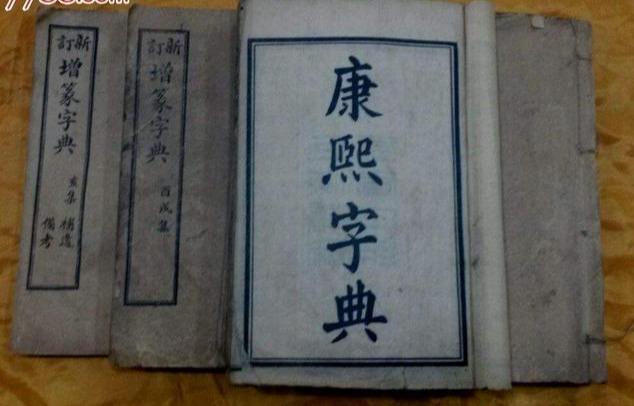 康熙字典
新訂
增篆字典
酉戌集
新訂
增篆字典
亥集
補遺
備考